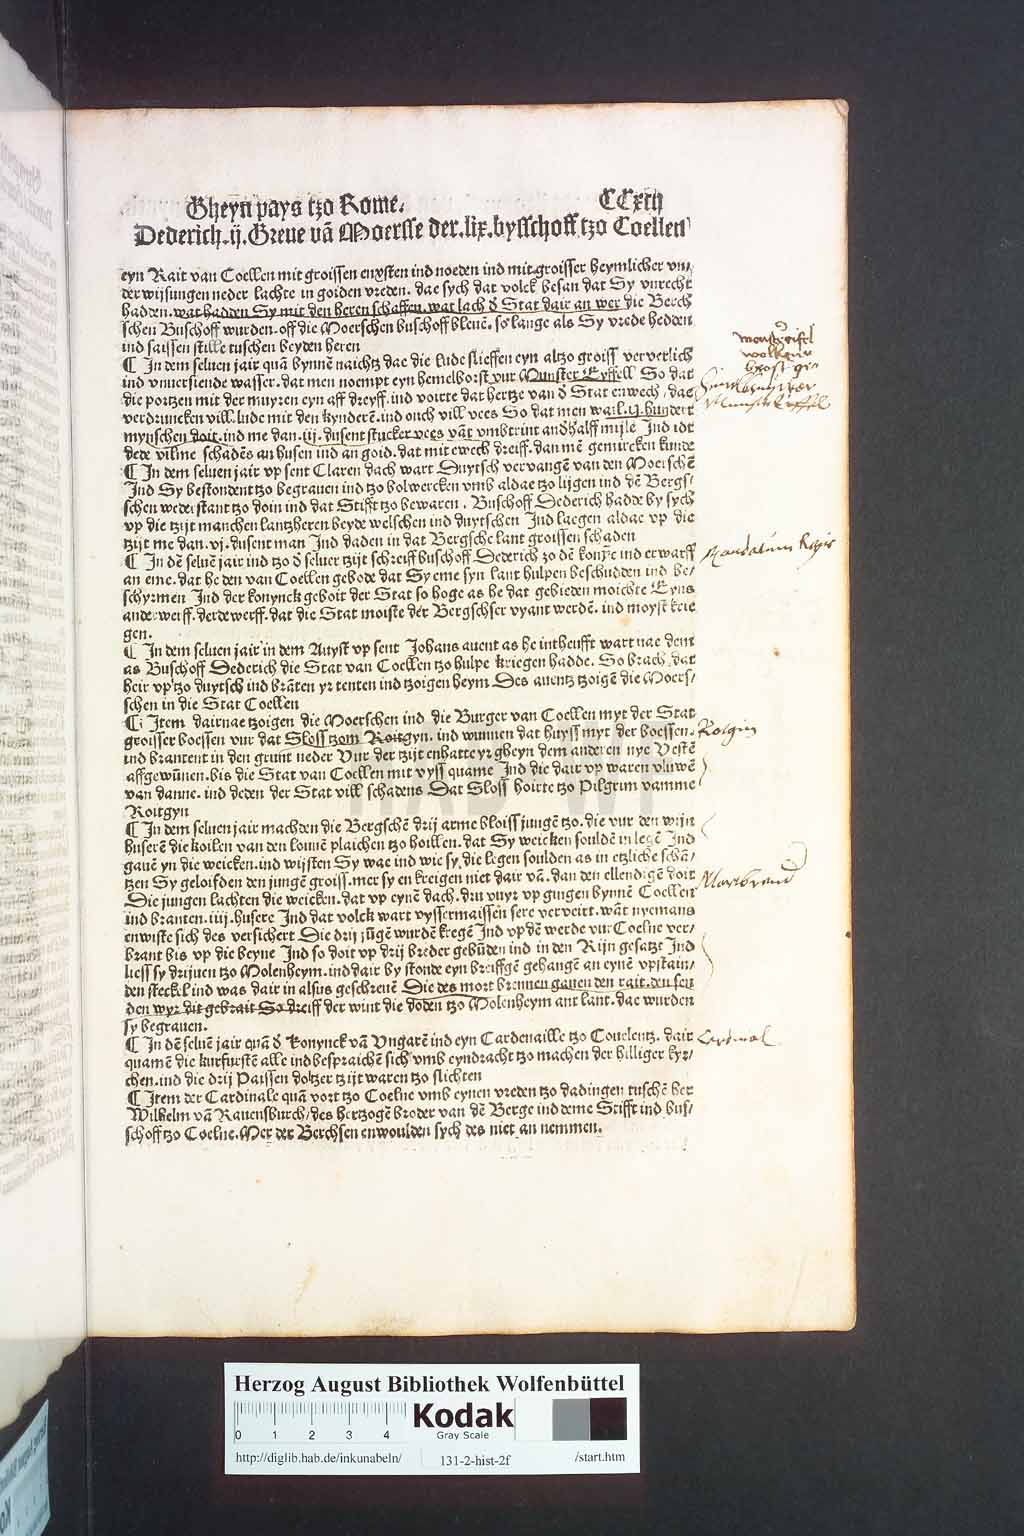 Gheyn pays tzo Rome. CCxcij
Dederich.ij.Greue vã Moersse der.lix.bysschoff tzo Coellen
eyn Rait van Coellen mit groissen enxsten ind noeden ind mit groisser heymlicher vn/
derwijsungen neder lachte in goiden vreden. dae sych dat volck besan dat Sy vnrecht
hadden. wat hadden Sy mit den heren schaffen. wat lach d Stat dair an wer die Berch
schen Buschoff wurden. off die Moerschen buschoff bleuẽ. so lange als Sy vrede hedden
ind saissen stille tuschen beyden heren
¶ In dem seluen jair quã bynnen naichtz dae die lude slieffen eyn altzo groiss ververlich
ind vnuersiende wasser. dat men noempt eyn hemelborst vur Munster Eyffell So dat
die portzen mit der muyren eyn aff dreyff. ind voirte dat hertze van d Stat enwech, dae
verdruncken vill lude mit den kynderẽ. ind ouch vill vees So dat men wail.ij.hundert
mynschen doit. ind me dan.iij. dusent stucker vees vãt vmbtrint andhalff mijle Ind idt
dede vilme schadẽs an husen ind an goid. dat mit ewech dreiff. dan mẽ gemircken kunde
¶ In dem seluen jair vp sent Claren dach wart Duytsch vervangẽ van den Moerschẽ
Ind Sy bestondent tzo begrauen ind tzo bolwercken vmb aldae tzo lijgen ind dẽ Bergs/
schen wederstant tzo doin ind dat Stifft tzo bewaren. Buschoff Dederich hadde by sych
vp die tzijt manchen lantzheren beyde welschen ind duytschen Ind laegen aldae vp die
tzijt me dan.vj.dusent man Ind daden in dat Bergsche lant groissen schaden
¶ In dẽ seluẽ jair ind tzo d seluer tzijt schreiff buschoff Dederich zo dẽ konyge ind erwarff
an eme. dat he den van Coellen gebode dat Sy eme syn lant hulpen beschudden ind be/
schyrmen Ind der konynck geboit der Stat so hoge as he dat gebieden moichte Eyns
anderwerff. derdewerff. dat die Stat moiste der Bergschser vyant werdẽ. ind moyst krie
gen.
¶ In dem seluen jair in dem Auyst vp sent Johans auent as he intheufft wart nae dem
as Buschoff Dederich die Stat van Coellen tzo hulpe kriegen hadde. So brach dat
heir vp tzo duytsch ind brãten yr tenten ind tzoigen heym Des auentz tzoigẽ die Moers/
schen in die Stat Coellen
¶ Item dairnae tzoigen die Moerschen ind die Burger van Coellen myt der Stat
groisser boessen vur dat Sloss tzom Roitgyn. ind wunnen dat huyss myt der boessen.
ind brantent in den grunt neder Vur der tzijt enhatte yr gheyn dem anderen nye Vestẽ
affgewũnen. bis die Stat van Coellen mit vyss quame Ind die dair vp waren vluwẽ
van danne. ind deden der Stat vill schadens Dat Sloss hoirte tzo Pilgrim vamme
Roitgyn
¶ In dem seluen jair machden die Bergschẽ drij arme bloiss jungẽ tzo. die vur den wijn
huserẽ die koilen van den louuẽ plaichen tzo hoillen. dat Sy weicken souldẽ in legẽ Ind
gauẽ yn die weicken. ind wijsten Sy wae ind wie sy. die legen soulden as in etzliche schã/
tzen Sy geloifden den jungẽ groiss. mer sy en kreigen niet dair vã. dan den ellendigẽ doit
Die jungen lachten die weicken. dat vp eynẽ dach. dru vuyr vp gingen bynnẽ Coellen
ind branten.iiij.husere Ind dat volck wart vyssermaissen sere verveirt. wãt nyemans
enwiste sich des versichert Die drij jũgẽ wurdẽ kregẽ Ind vp dẽ werde vur Coelne ver/
brant bis vp die beyne Ind so doit vp drij breder gebũden ind in den Rijn gesatzt Ind
liess sy drijuen tzo Molenheym. ind dair by stonde eyn breiffgẽ gehangẽ an eynẽ vpstain/
den steckel ind was dair in alsus geschreuẽ Die des mort brennen gauen den rait. den sen
den wyr dit gebrait So dreiff der wint die doden tzo Molenheym ant lant. dae wurden
sy begrauen.
¶ In dẽ seluẽ jair quã d Konynck vã Vngarẽ ind eyn Cardenaille tzo Couelentz. dair
quamẽ die kurfurstẽ alle ind bespraichẽ sich vmb eyndracht tzo machen der hilliger kyr/
chen. ind die drij Paissen do tzer tzijt waren tzo slichten
¶ Item der Cardinale quã vort tzo Coelne vmb eynen vreden tzo dadingen tuschẽ her
Wilhelm vã Rauensburch/des hertzogẽ broder van dẽ Berge ind deme Stifft ind bus/
schoff tzo Coelne. Mer der Berchsen enwoulden sych des niet an nemmen.
Mandatum Regis
Rotgin
Mortbrand
Cardinal
Herzog August Bibliothek Wolfenbüttel
0 1 2 3 4
Kodak
Gray Scale
http://diglib.hab.de/inkunabeln/ 131-2-hist-2f /start.htm